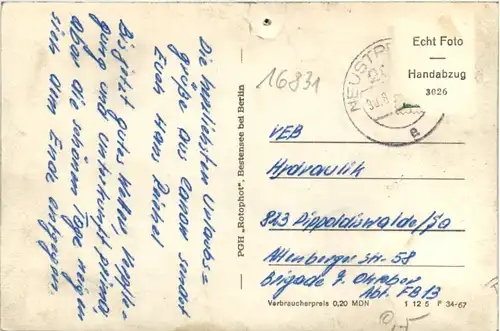 Die herzlichsten Urlaubs=
grüße aus Canow sendet
Euch Hans Reichel
Bis jetzt gutes Wetter, Verpfle-
gung und Unterkunft prima,
aber die schönen Tage neigen
sich dem Ende entgegen.
PGH „Rotophot", Bestensee bei Berlin
16831
NEUSTR
e
Echt Foto
Handabzug
3026
VEB
Hydraulik
823 Dippoldiswalde/Sa
Altenberger Str. 58
Brigade 7. Oktober
Abt. FB 13
Verbraucherpreis 0,20 MDN 1 12 5 P 34-67